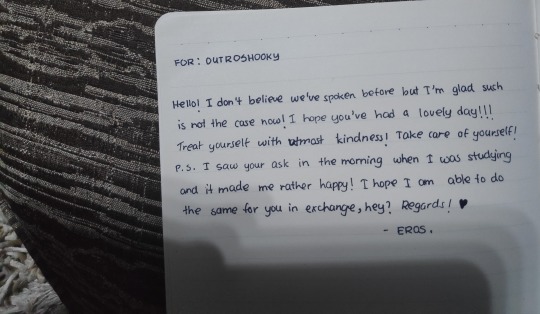 FOR: OUTROSHOOKY
Hello! I don't believe we've spoken before but I'm glad such
is not the case now! I hope you've had a lovely day!!!
Treat yourself with utmost kindness! Take care of yourself!
P.S. I saw your ask in the morning when I was studying
and it made me rather happy! I hope I am able to do
the same for you in exchange, hey? Regards! ♥
- EROS.